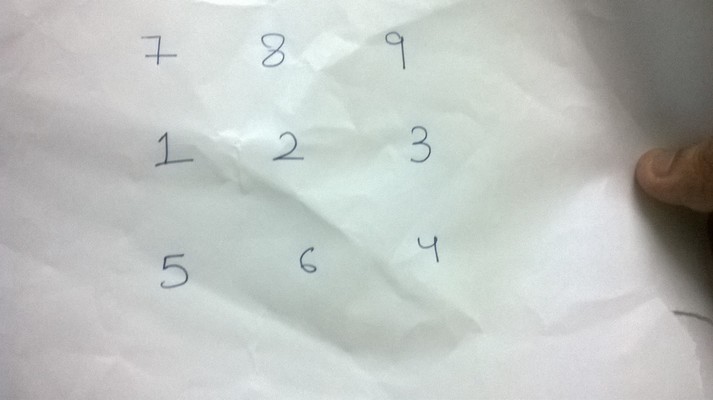 7 8 9
1 2 3
5 6 4